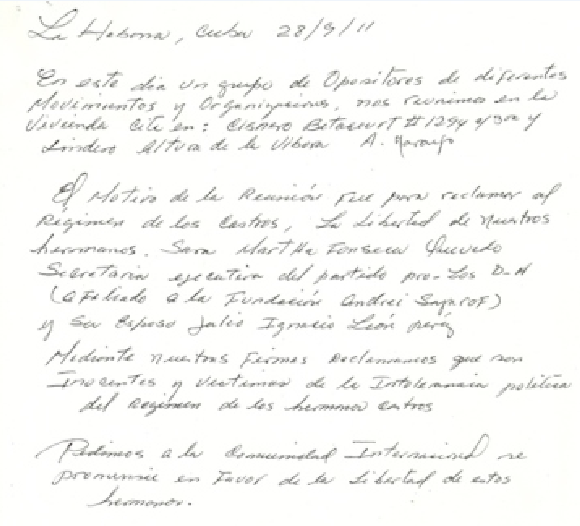 La Habana, Cuba 28/9/11
En este dia un grupo de Opositores de diferentes
Movimientos y Organizaciones, nos reunimos en la
Vivienda Cita en: Cisnero Betacourt # 1294 e/ 3ra y
Lindero Altura de la Vibora A. Naranjo
El Motivo de la Reunión Fue para reclamar al
Regimen de los Castros, La Libertad de nuestros
hermanos. Sara MartHa Fonseca Quevedo
Secretaria ejecutiva del partido pro-Los D-H
(afiliado a la Fundación Andrei Sajarof)
y su Esposo Julio Ignacio León peréz
Mediante nuestras Firmas Reclamamos que son
Inocentes y victimas de la Intolerancia politica
del Regimen de los hermanos Castros
Pedimos a la Comunidad Internacional se
pronuncie en Favor de la Libertad de estos
hermanos.